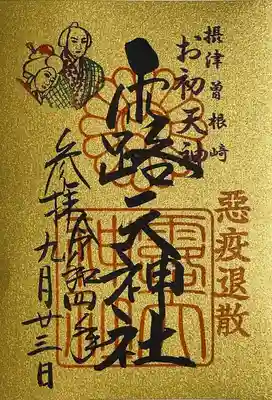 摂津曽根崎
お初天神
悪疫退散
露天神社
参拝令和四年九月廿三日